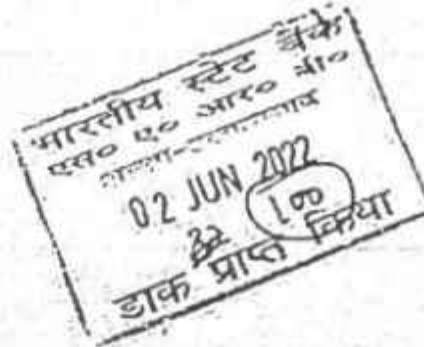 भारतीय स्टेट बैंक
एस० ए० आर० बी०
02 JUN 2022
डाक प्राप्त किया